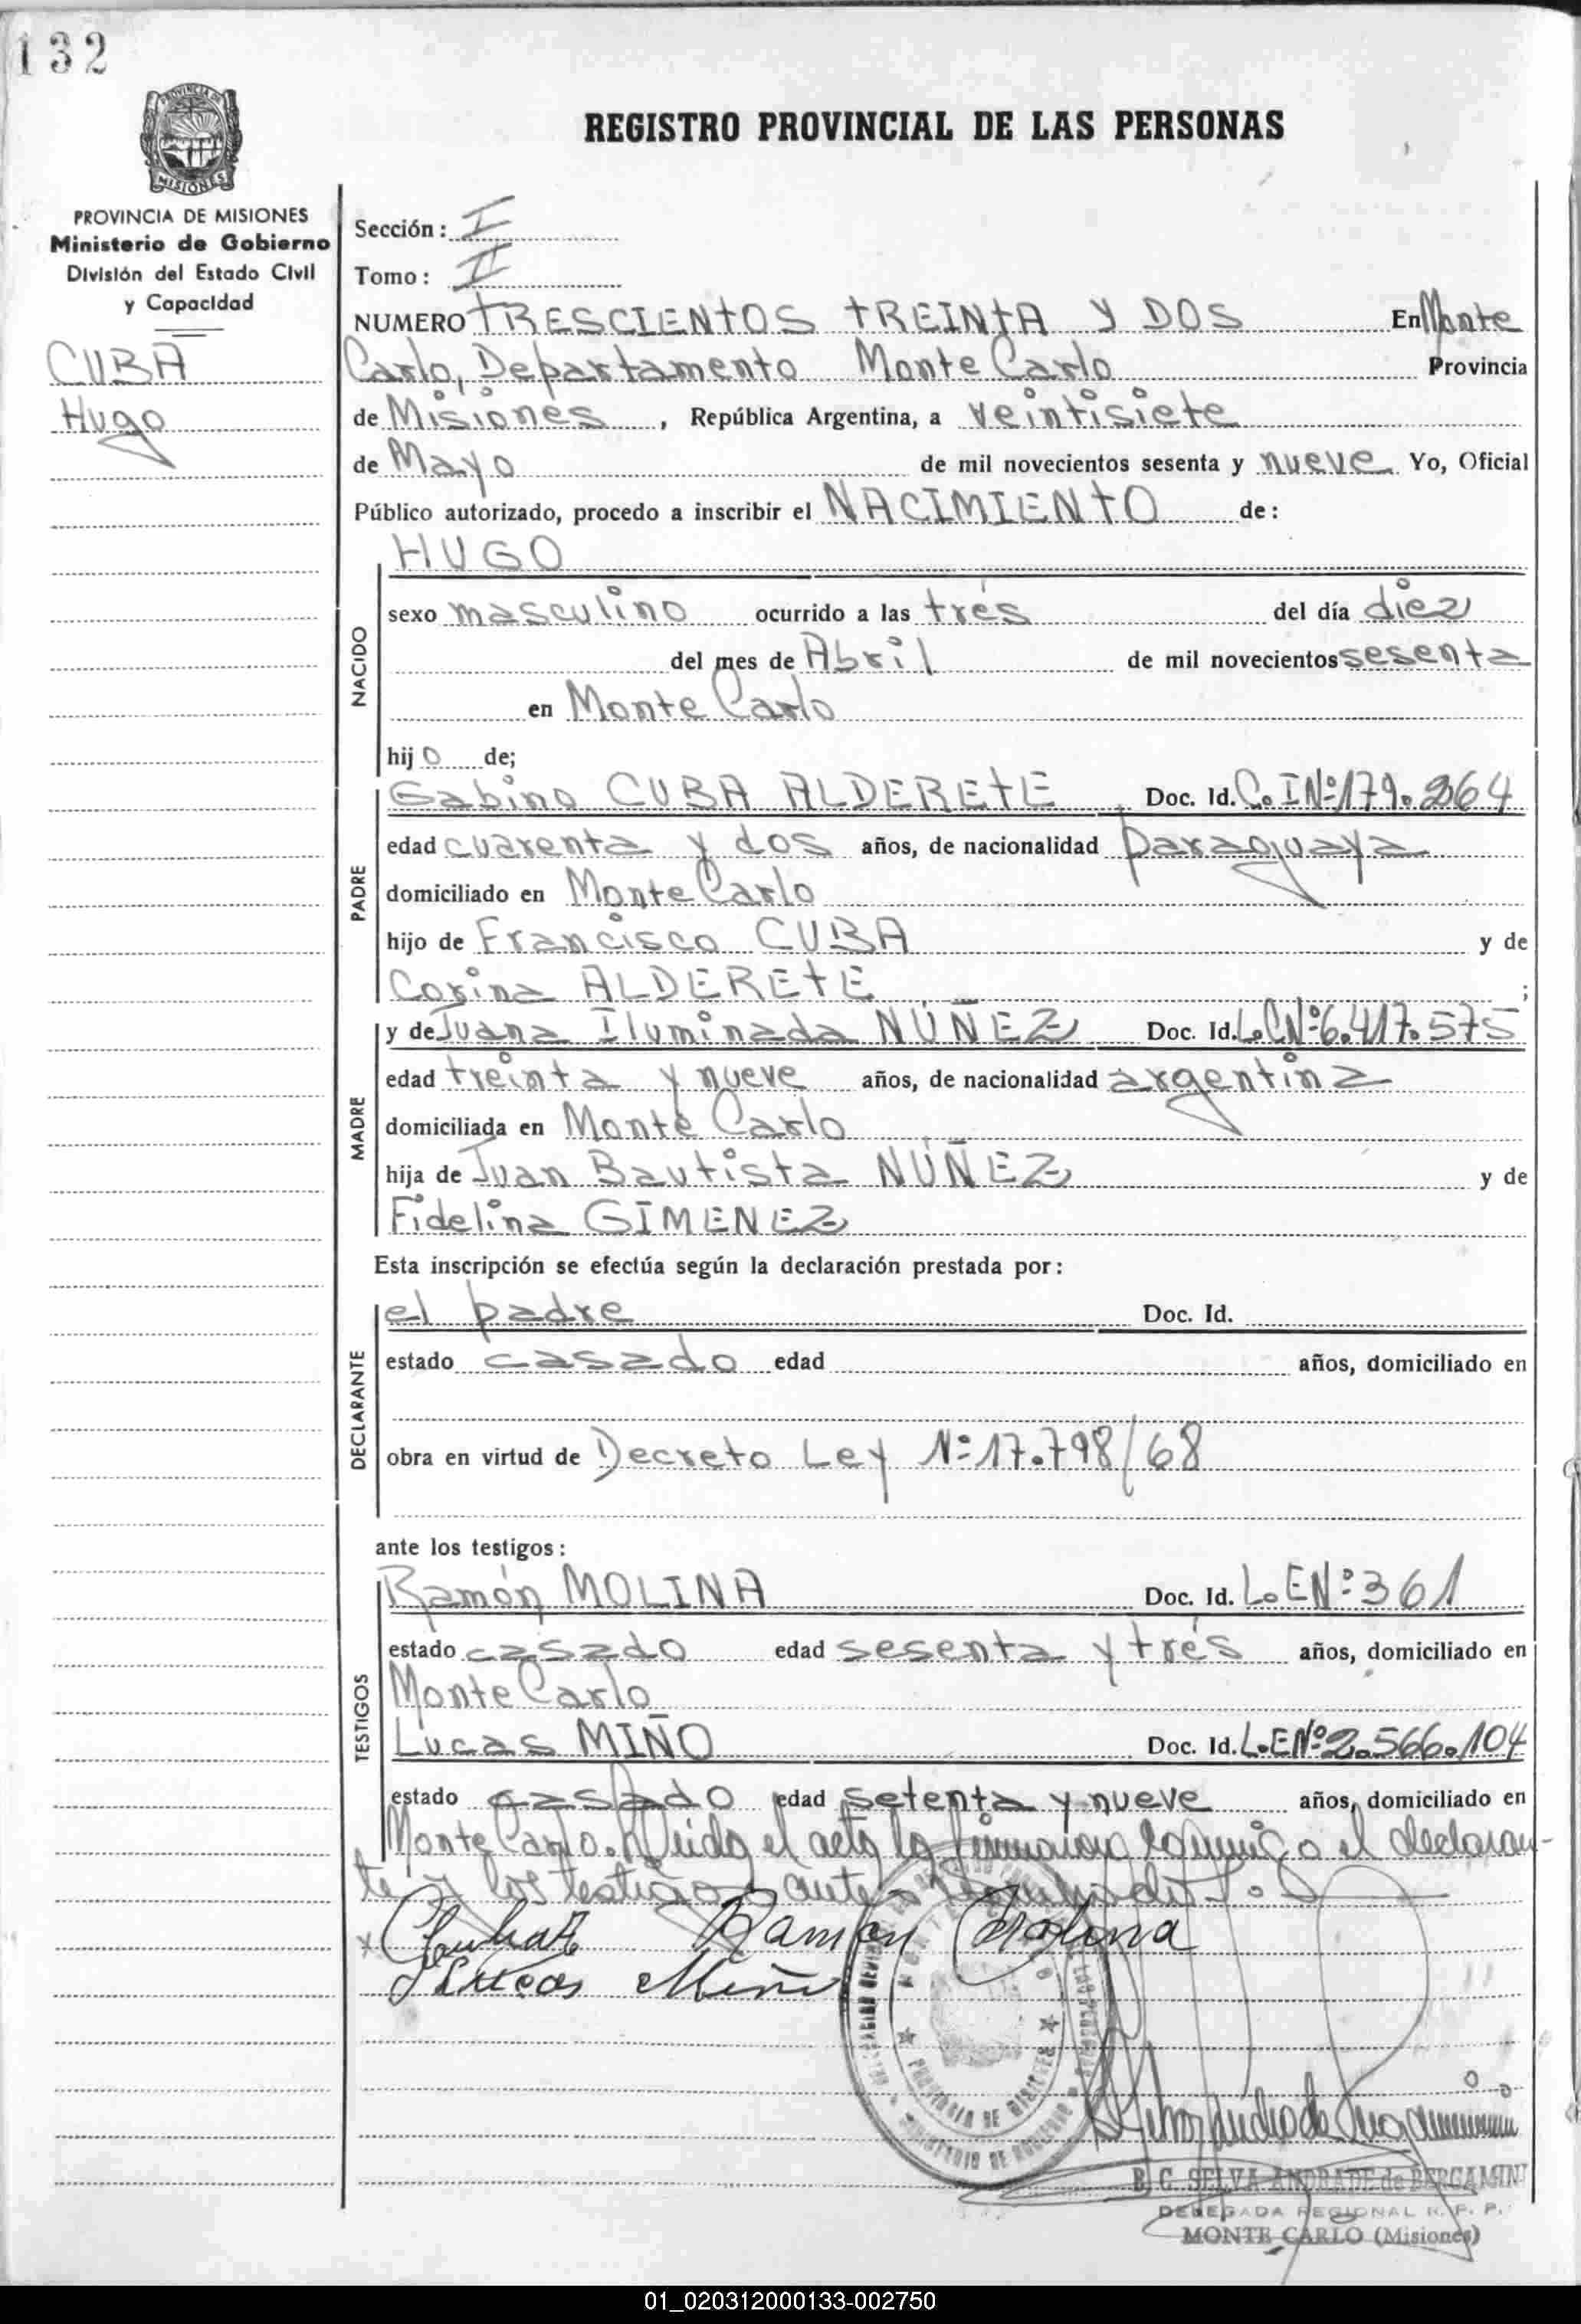 132
PROVINCIA DE
MISIONES
REGISTRO PROVINCIAL DE LAS PERSONAS
PROVINCIA DE MISIONES
Ministerio de Gobierno
División del Estado Civil
y Capacidad
CUBA
Hugo
Sección: I
Tomo: II
NUMERO TRESCIENTOS TREINTA Y DOS En Monte
Carlo, Departamento Monte Carlo Provincia
de Misiones, República Argentina, a veintisiete
de Mayo de mil novecientos sesenta y nueve Yo, Oficial
Público autorizado, procedo a inscribir el NACIMIENTO de:
HUGO
NACIDO
sexo masculino ocurrido a las trés del día diez
del mes de Abril de mil novecientos sesenta
en Monte Carlo
hijo de;
PADRE
Gabino CUBA ALDERETE Doc. Id. C. I Nº 179.264
edad cuarenta y dos años, de nacionalidad paraguaya
domiciliado en Monte Carlo
hijo de Francisco CUBA y de
Corina ALDERETE ;
MADRE
y de Juana Iluminada NÚÑEZ Doc. Id. L.C Nº 6.417.575
edad treinta y nueve años, de nacionalidad argentina
domiciliada en Monte Carlo
hija de Juan Bautista NÚÑEZ y de
Fidelina GIMENEZ
Esta inscripción se efectúa según la declaración prestada por:
DECLARANTE
el padre Doc. Id.
estado casado edad años, domiciliado en
obra en virtud de Decreto Ley Nº 17.798/68
ante los testigos:
TESTIGOS
Ramón MOLINA Doc. Id. L.E Nº 361
estado casado edad sesenta y trés años, domiciliado en
Monte Carlo
Lucas MIÑO Doc. Id. L.E Nº 2.566.104
estado casado edad setenta y nueve años, domiciliado en
Monte Carlo. Leida el acta la firman conmigo el declaran-
te y los testigos ante
Ramón Molina
Lucas Miño
PROVINCIA DE MISIONES
MINISTERIO DE GOBIERNO
B. G. SELVA ANDRADE de BERGAMINI
DELEGADA REGIONAL R. P. P.
MONTE CARLO (Misiones)
01_020312000133-002750